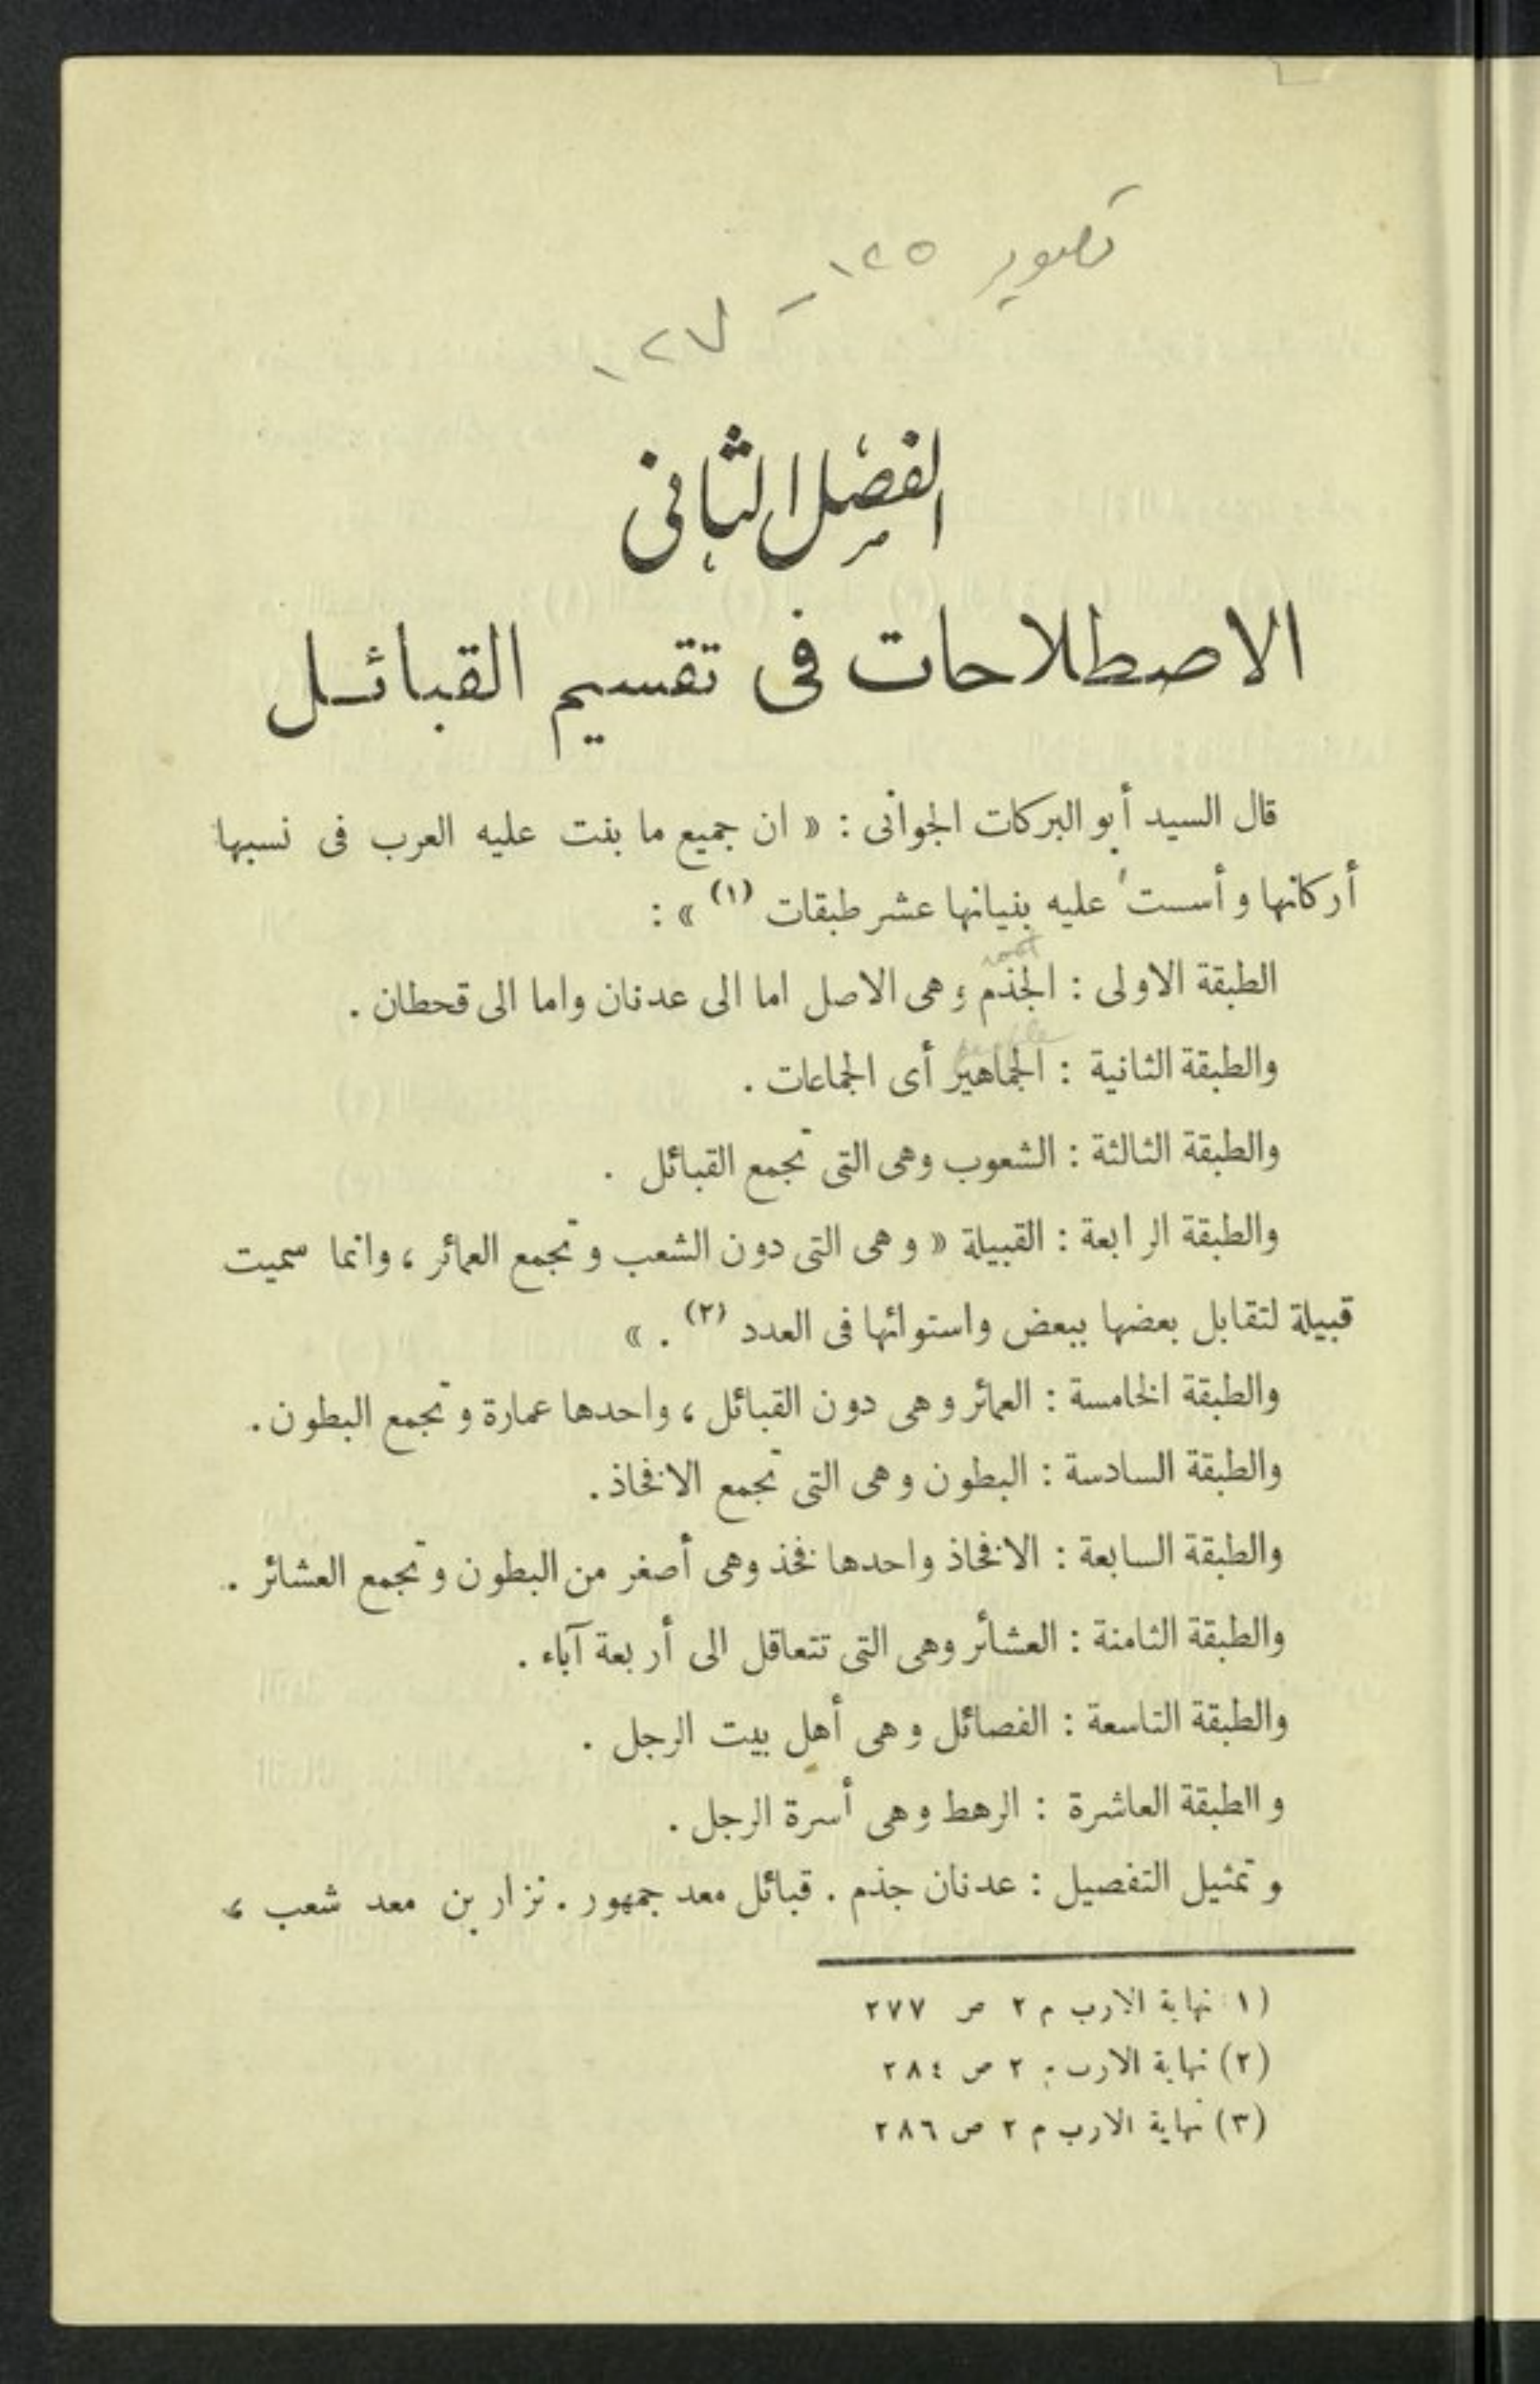 تصوير ١٢٥
– ١٢٧
الفصل الثانى
الاصطلاحات فى تقسيم القبائل
قال السيد أبو البركات الجوانى : « ان جميع ما بنت عليه العرب فى نسبها
أركانها وأسست عليه بنيانها عشر طبقات (١) » :
root
الطبقة الاولى : الجذم وهى الاصل اما الى عدنان واما الى قحطان .
people
والطبقة الثانية : الجماهير أى الجماعات .
والطبقة الثالثة : الشعوب وهى التى تجمع القبائل .
والطبقة الرابعة : القبيلة « وهى التى دون الشعب وتجمع العمائر ، وانما سميت
قبيلة لتقابل بعضها ببعض واستوائها فى العدد (٢) . »
والطبقة الخامسة : العمائر وهى دون القبائل ، واحدها عمارة وتجمع البطون .
والطبقة السادسة : البطون وهى التى تجمع الافخاذ .
والطبقة السابعة : الافخاذ واحدها فخذ وهى أصغر من البطون وتجمع العشائر .
والطبقة الثامنة : العشائر وهى التى تتعاقل الى أربعة آباء .
والطبقة التاسعة : الفصائل وهى أهل بيت الرجل .
والطبقة العاشرة : الرهط وهى أسرة الرجل .
وتمثيل التفصيل : عدنان جذم . قبائل معد جمهور . نزار بن معد شعب ،
(١) نهاية الارب م ٢ ص ٢٧٧
(٢) نهاية الارب م ٢ ص ٢٨٤
(٣) نهاية الارب م ٢ ص ٢٨٦